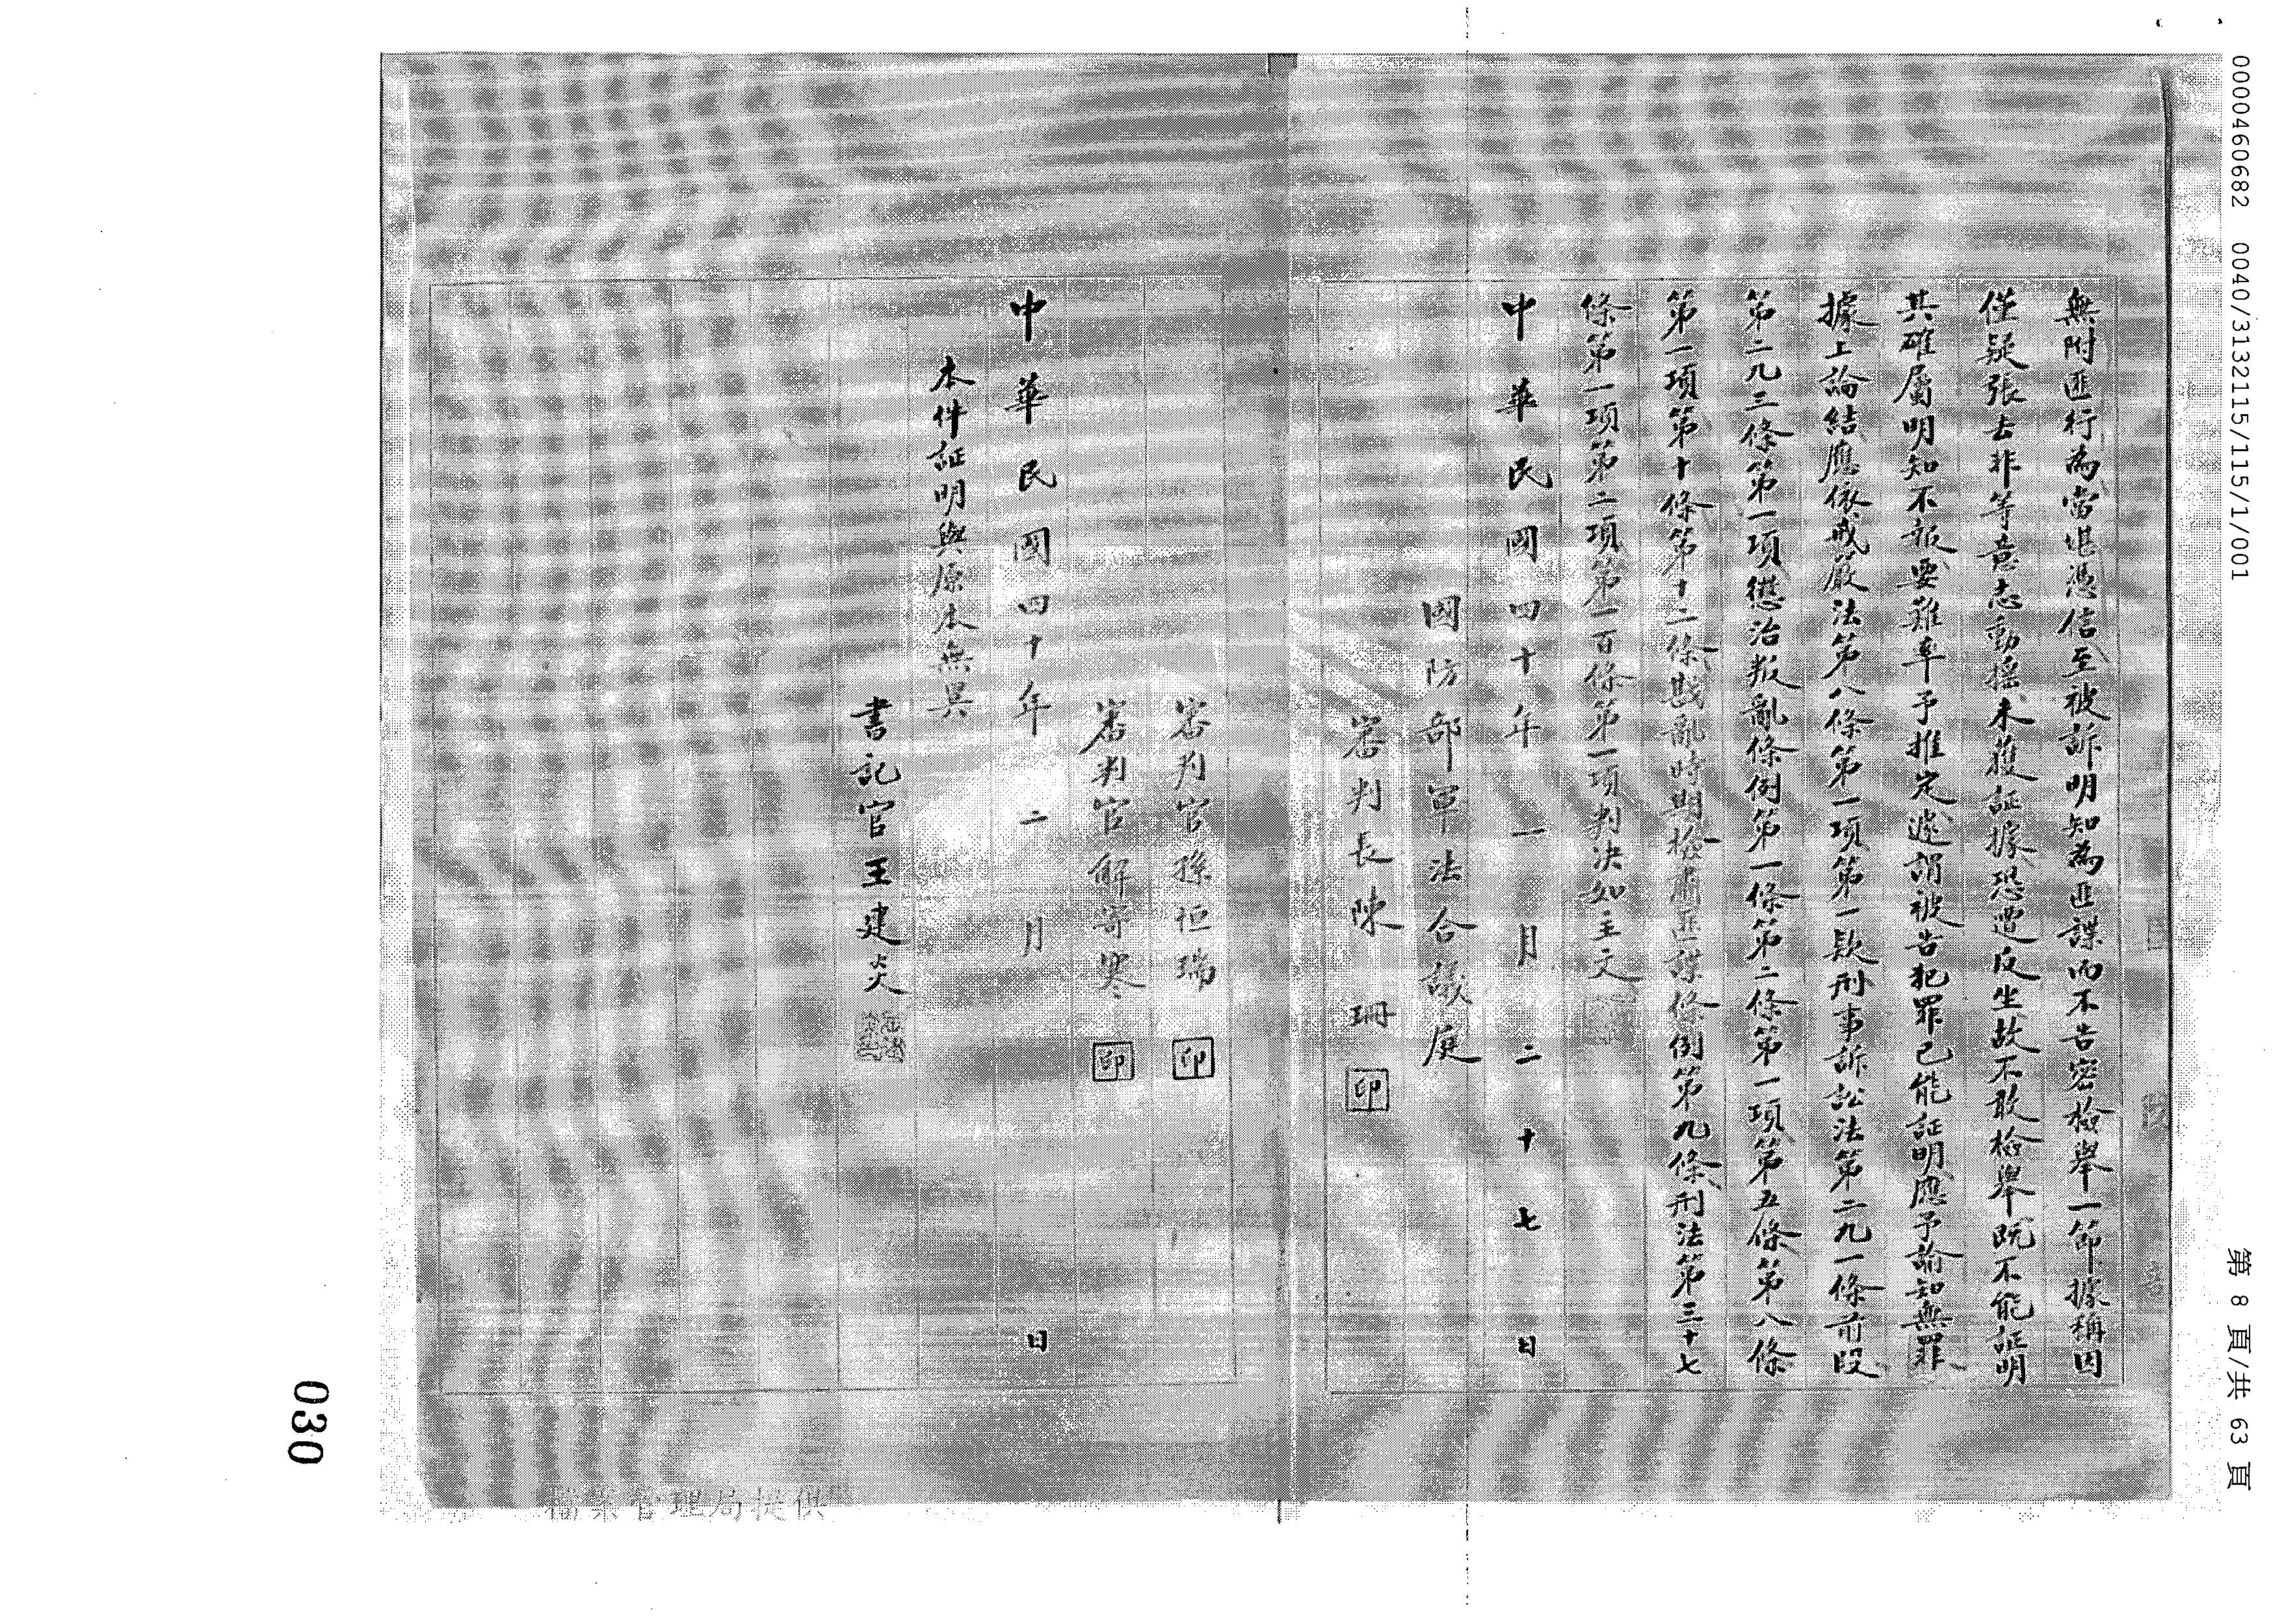 0000460682 0040/3132115/115/1/001
第 8 頁/共 63 頁
無附匪行為當堪憑信至被訴明知為匪諜而不告密檢舉一節據稱因
僅疑張去非等意志動搖未獲証據恐遭反坐故不敢檢舉既不能証明
其確屬明知不報要難率予推定遽謂被告犯罪已能証明應予諭知無罪
據上論結應依戒嚴法第八條第一項第一款刑事訴訟法第二九一條前段
第二九三條第一項懲治叛亂條例第一條第二條第一項第五條第八條
第一項第十條第十二條戡亂時期檢肅匪諜條例第九條刑法第三十七
條第一項第二項第一百條第一項判決如主文
中華民國四十年一月二十七日
國防部軍法合議庭
審判長陳珊 印
審判官孫恒瑞 印
審判官解寄寒 印
中華民國四十年二月 日
本件証明與原本無異
書記官王建炎
檔案管理局提供
030